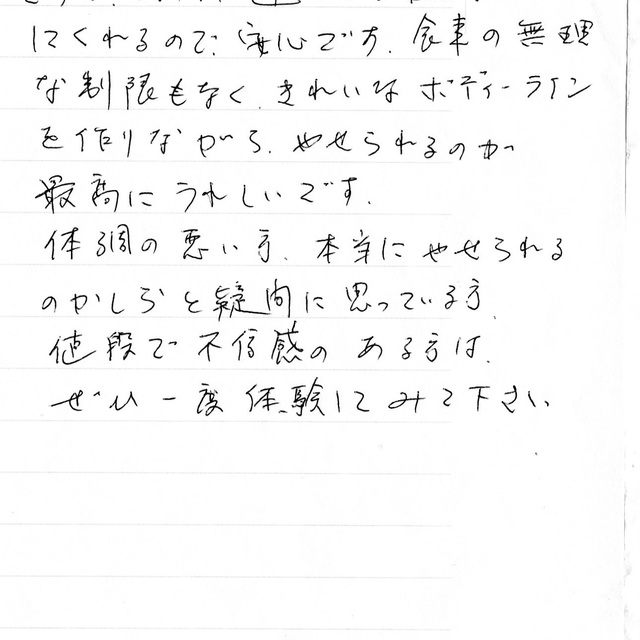 にくれるので、安心です。食事の無理
な制限もなく、きれいなボディーライン
を作りながら、やせられるのが
最高にうれしいです。
体調の悪い方、本当にやせられる
のかしらと疑問に思っている方、
値段で不信感のある方は、
ぜひ一度体験してみて下さい